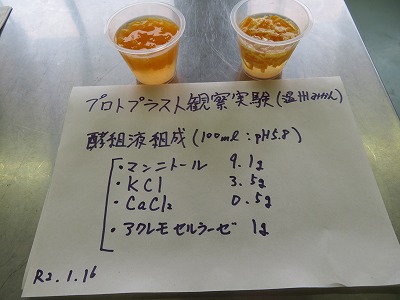 プロトプラスト観察実験(温州みかん)
酵組液組成(100ml:pH5.8)
・マンニトール 9.1g
・KCl 3.5g
・CaCl₂ 0.5g
・マクレモセルラーゼ 1g
R2.1.16